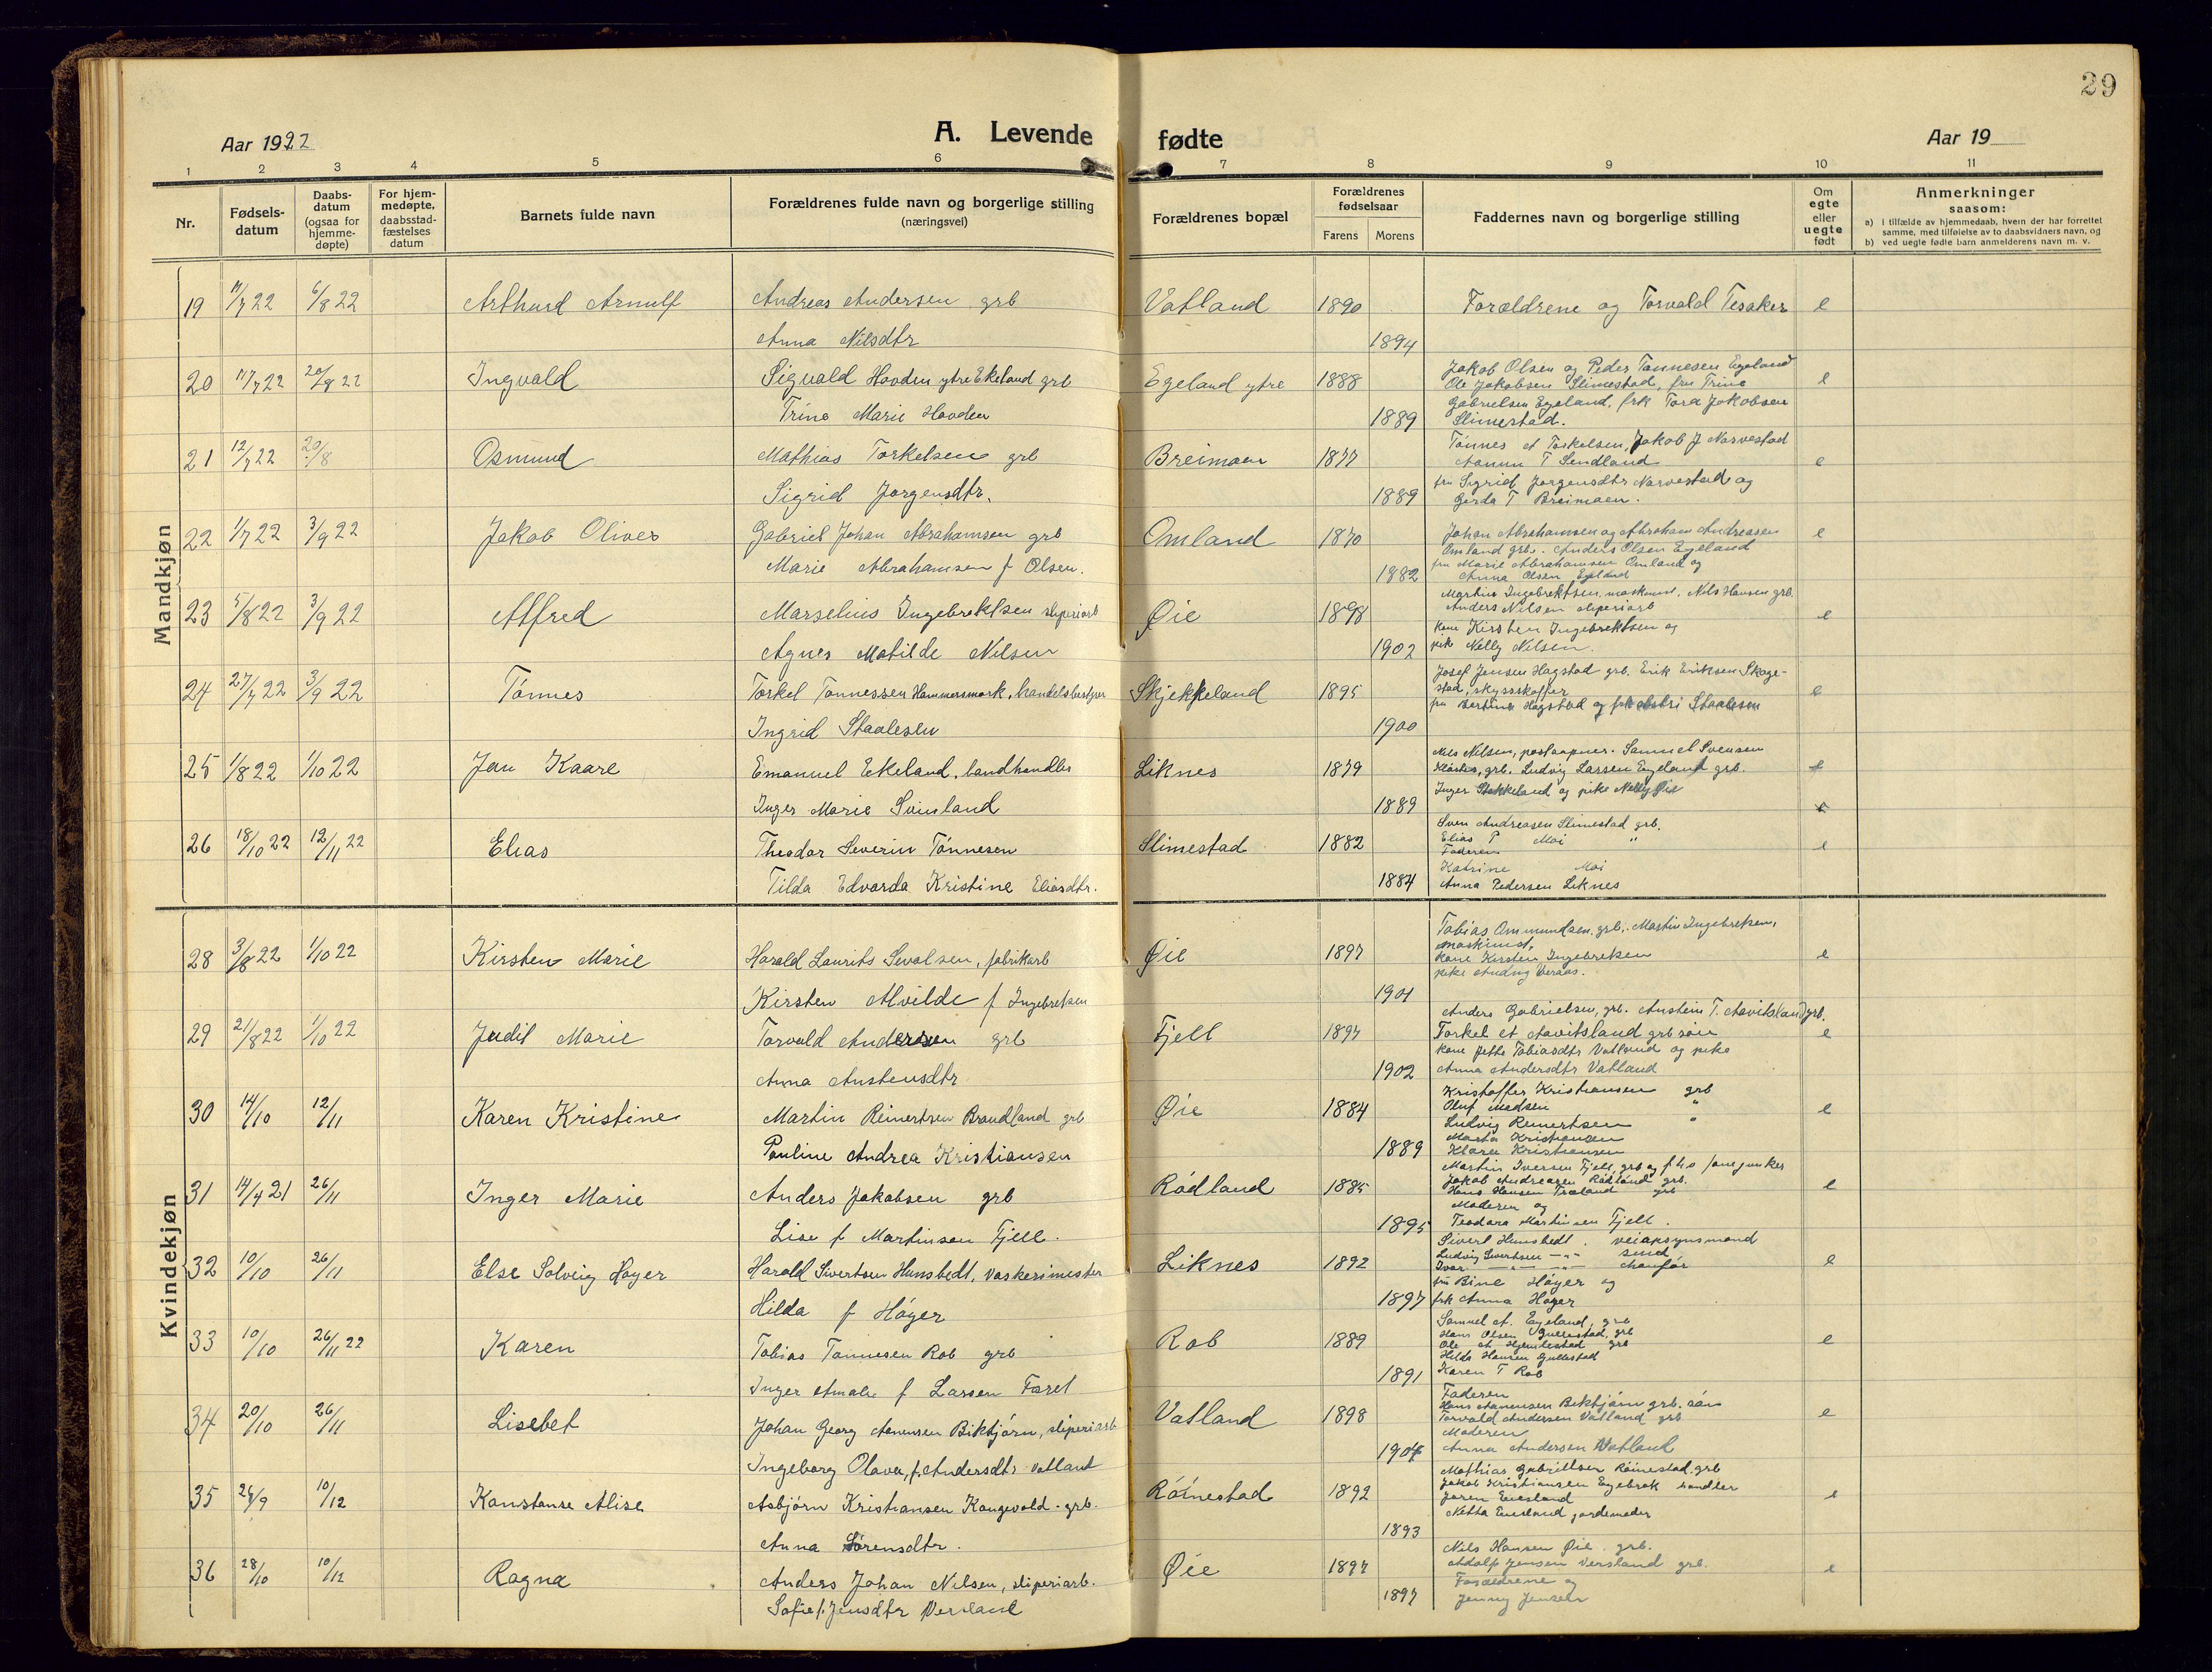 29
Aar 1922
A. Levende fødte
Aar 19
1 2 3 4 5 6 7 8 9 10 11
Nr.
Fødsels-
datum
Daabs-
datum
(ogsaa for
hjemme-
døpte)
For hjem-
medøpte,
daabsstad-
fæstelses
datum
Barnets fulde navn
Forældrenes fulde navn og borgerlige stilling
(næringsvei)
Forældrenes bopæl
Forældrenes
fødselsaar
Farens Morens
Faddernes navn og borgerlige stilling
Om
egte
eller
uegte
født
Anmerkninger
saasom:
a) i tilfælde av hjemmedaab, hvem der har forrettet
samme, med tilføielse av to daabsvidners navn, og
b) ved uegte fødte barn anmelderens navn m. v.
Mandkjøn
19 11/7 22 6/8 22 Arthurd Arnulf Andreas Andersen grb Vatland 1890 Forældrene og Torvald Tesaker e
Anna Nilsdtr 1894
20 11/7 22 20/8 22 Ingvald Sigvald Hovden ytre Ekeland grb Egeland ytre 1888 e
Trine Marie Hovden 1889
Jakob Olsen og Peder Tønnesen Egeland
Ole Jakobsen Slimestad, fru Trine
Gabrielsen Egeland, frk Tora Jakobsen
Slimestad.
21 12/7 22 20/8 Osmund Mathias Torkelsen grb Breimoen 1877 e
Sigrid Jørgensdtr. 1889
Tønnes A Torkelsen, Jakob J Narvestad
T Sendland
fru Sigrid Jørgensdtr Narvestad og
Gerda T Breimoen.
22 1/7 22 3/9 22 Jakob Oliver Gabriel Johan Abrahamsen grb Omland 1870 e
Marie Abrahamsen f Olsen. 1882
Johan Abrahamsen og Abraham Andreasen
Omland grb. Anders Olsen Egeland
fru Marie Abrahamsen Omland og
Anna Olsen Egeland
23 5/8 22 3/9 22 Alfred Marselius Ingebrektsen sliperiarb Øie 1898 e
Agnes Matilde Nilsen 1902
Martin Ingebrektsen, maskinist, Nils Hansen grb.
Anders Nilsen sliperiarb
kone Kirsten Ingebrektsen og
pike Nelly Nilsen.
24 27/7 22 3/9 22 Tønnes Torkel Tønnessen Hammersmark, handelsbestyrer Skjekkeland 1895 e
Ingrid Staalesen 1900
Josef Jensen Hagstad grb. Erik Eriksen Skage-
stad, skysskaffer
fru Bertine Hagstad og frk Astri Staalesen
25 1/8 22 1/10 22 Jan Kaare Emanuel Ekeland, landhandler Liknes 1879 e
Inger Marie Svinland 1889
Nils Nilsen, postaapner. Samuel Svensen
grb. Ludvig Larsen Egeland grb.
Inger Stakkeland og pike Nelly Øie
26 18/10 22 12/11 22 Elias Theodor Severin Tønnesen Slimestad 1882 e
Tilda Edvarda Kristine Eliasdtr. 1884
Sven Andreasen Slimestad grb.
Elias P Moi "
Faderen
Katrine Moi
Anna Pedersen Liknes
Kvindekjøn
28 3/8 22 1/10 22 Kirsten Marie Harald Laurits Sevalsen, fabrikarb Øie 1897 e
Kirsten Alvilde f Ingebretsen 1901
Tobias Ommundsen. grb., Martin Ingebretsen,
maskinist,
kone Kirsten Ingebretsen
pike Veraas.
29 21/8 22 1/10 22 Judit Marie Torvald Andersen grb Fjell 1897 e
Anna Anstensdtr 1902
Anders Gabrielsen, grb. Anstein T. Aavitsland grb.
Torkel A Aavitsland grb søn
kone Jette Tobiasdtr Vatland og pike
Anna Andersdtr Vatland
30 14/10 12/11 Karen Kristine Martin Reinertsen Brandland grb Øie 1884 e
Pauline Andrea Kristiansen 1889
Kristoffer Kristiansen grb
Oluf Madsen "
Ludvig Reinertsen "
Marta Kristiansen
Klara Kristiansen
31 14/4 21 26/11 Inger Marie Anders Jakobsen grb Rødland 1885 e
Lise f Martinsen Fjell. 1895
Martin Iversen Fjell, grb og
Jakob Andreasen Rødland grb.
Hans Hansen Træland grb
Moderen og
Teodora Martinsen Fjell.
32 10/10 26/11 Else Solveig Høyer Harald Sivertsen Hunsbedt, vaskerimester Liknes 1892 e
Hilda f Høyer 1897
Sivert Hunsbedt. veiopsynsmand
Ludvig Sivertsen —"— smed,
Ivar —"— —"— chauffør
fru Bine Høyer og
frk Anna Høyer
33 10/10 26/11 22 Karen Tobias Tønnesen Rob grb Rob 1889 e
Inger Amalie f Larsen Faret 1891
Samuel A. Egeland, grb
Hans Olsen Gullestad, grb
Ole A Hjemlestad grb
Hilda Hansen Gullestad
Karen T Rob
34 20/10 26/11 Lisebet Johan Georg Aanensen Biktjørn, sliperiarb Vatland 1898 e
Ingeborg Olava, f. Andersdtr Vatland 1904
Faderen
Hans Aanensen Biktjørn grb. søn
Torvald Andersen Vatland grb
Moderen
Anna Andersen Vatland
35 24/9 10/12 Konstanse Alise Asbjørn Kristiansen Kongevold - grb. Røinestad 1892 e
Anna Sørensdtr. 1893
Mathias Gabrielsen Røinestad. grb
Jakob Kristiansen Egebrok handler
Jøren Eiesland
Netta Eiesland jordemoder
36 28/10 10/12 Ragna Anders Johan Nilsen, sliperiarb. Øie 1897 e
Sofie f. Jensdtr Versland 1897
Nils Hansen Øie. grb.
Adolf Jensen Versland grb.
Forældrene og
Jenny Jensen